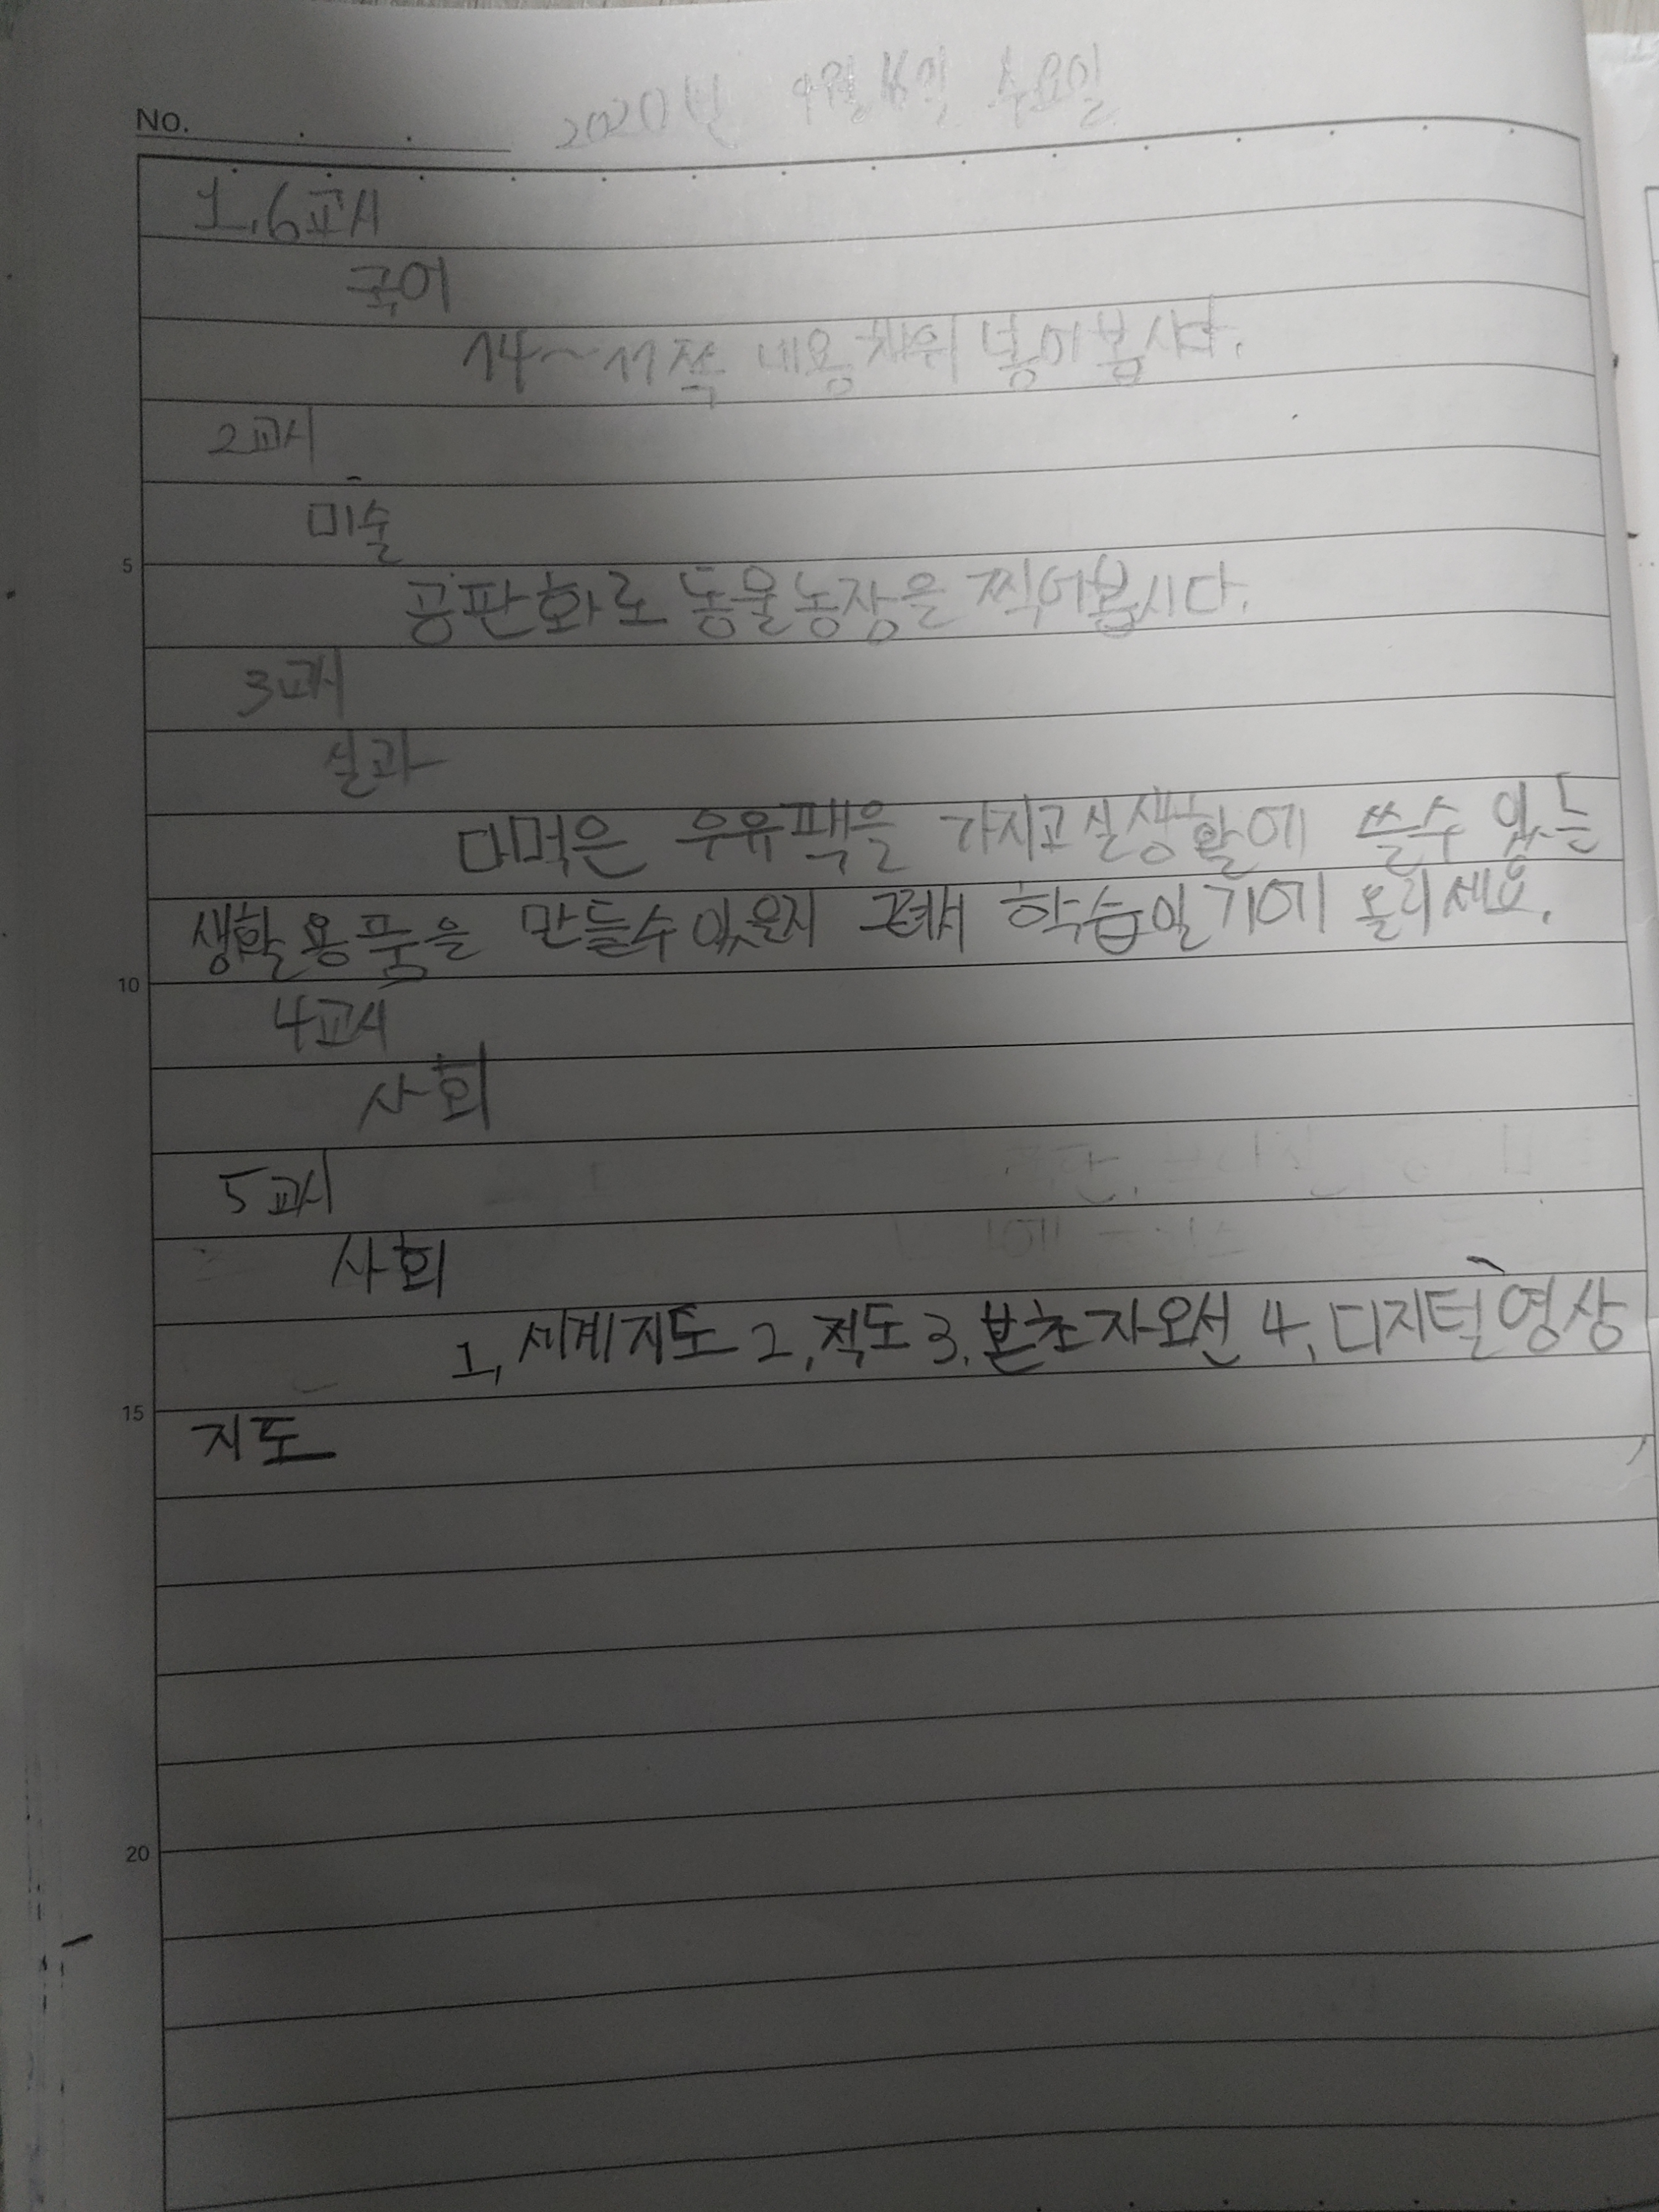 No. 2020년 9월 16일 수요일
1.6교시
국어
14~17쪽 내용 채워 넣어봅시다.
2교시
미술
5
공판화로 동물농장을 찍어봅시다.
3교시
실과
다먹은 우유팩을 가지고 실생활에 쓸수 있는
생활용품을 만들수 있은지 그려서 학습일기에 올리세요.
10
4교시
사회
5교시
사회
1, 세계지도 2, 적도 3, 본초자오선 4, 디지털영상
15
지도
20